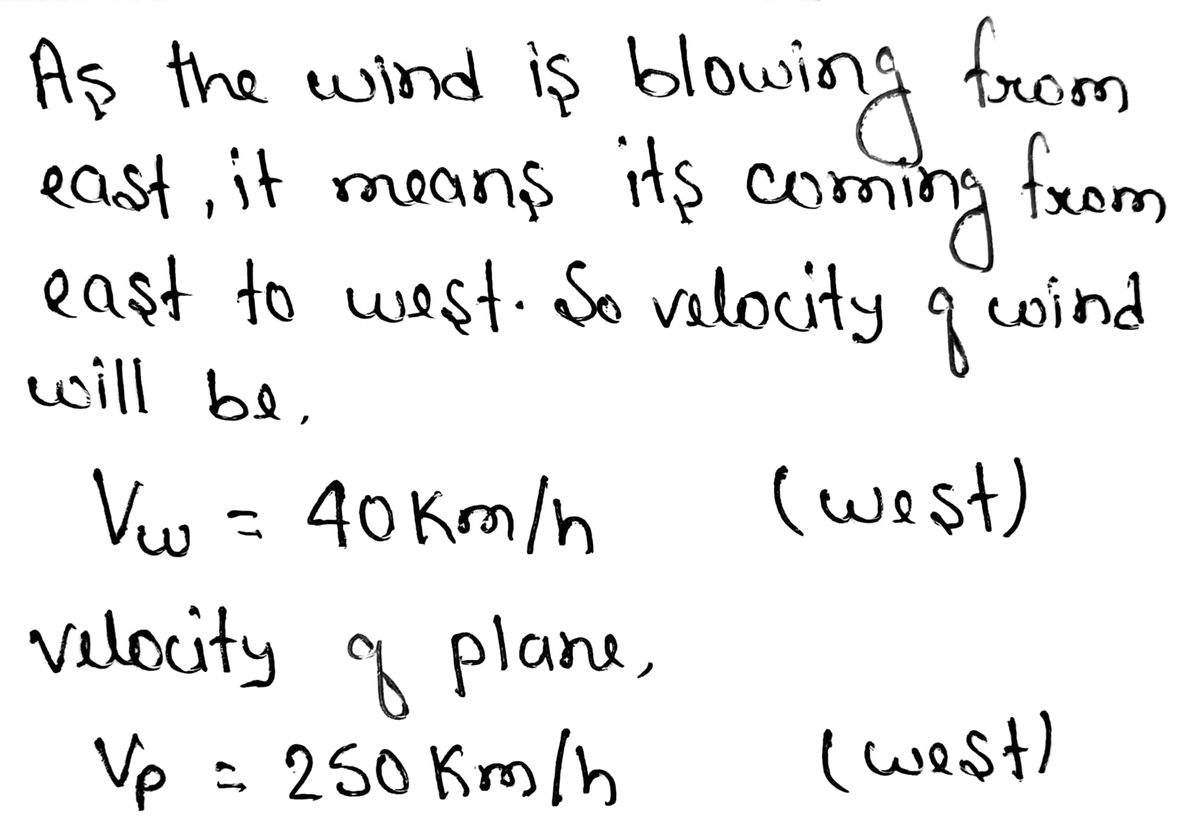 As the wind is blowing from
east, it means its coming from
east to west. So velocity of wind
will be,
Vw = 40 Km/h (west)
velocity of plane,
Vp = 250 Km/h (west)